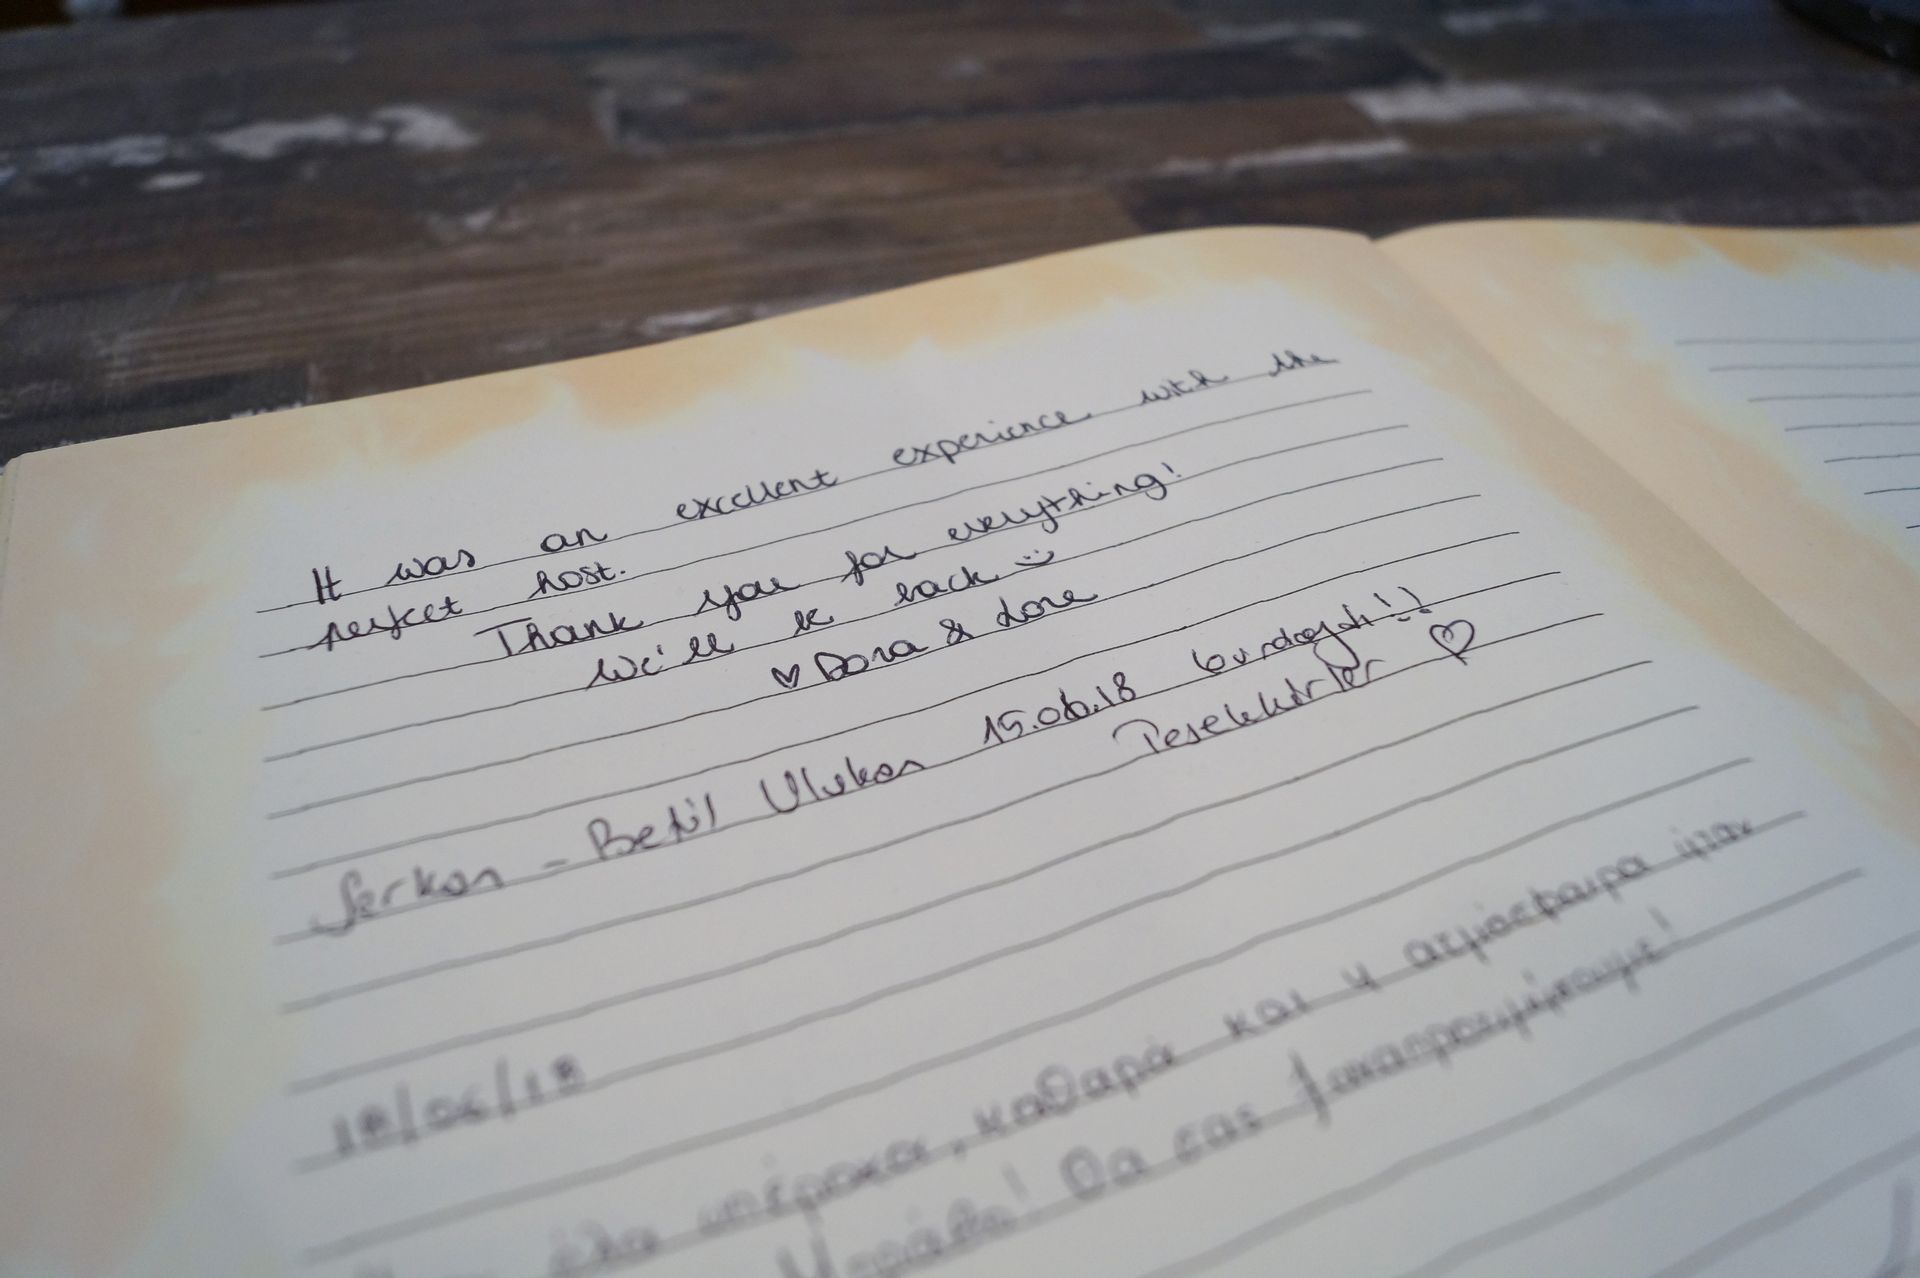 It was an excellent experience with the
perfect host.
Thank you for everything!
We'll be back :)
♡ Dora & Lore
Serkan - Betül Ulukan 15.06.18 burdaydı!:)
Teşekkürler ♡
18/06/18
Όλα υπέροχα, καθαρά και η ατμόσφαιρα ήταν
Θα σας ξαναπροτιμήσουμε!